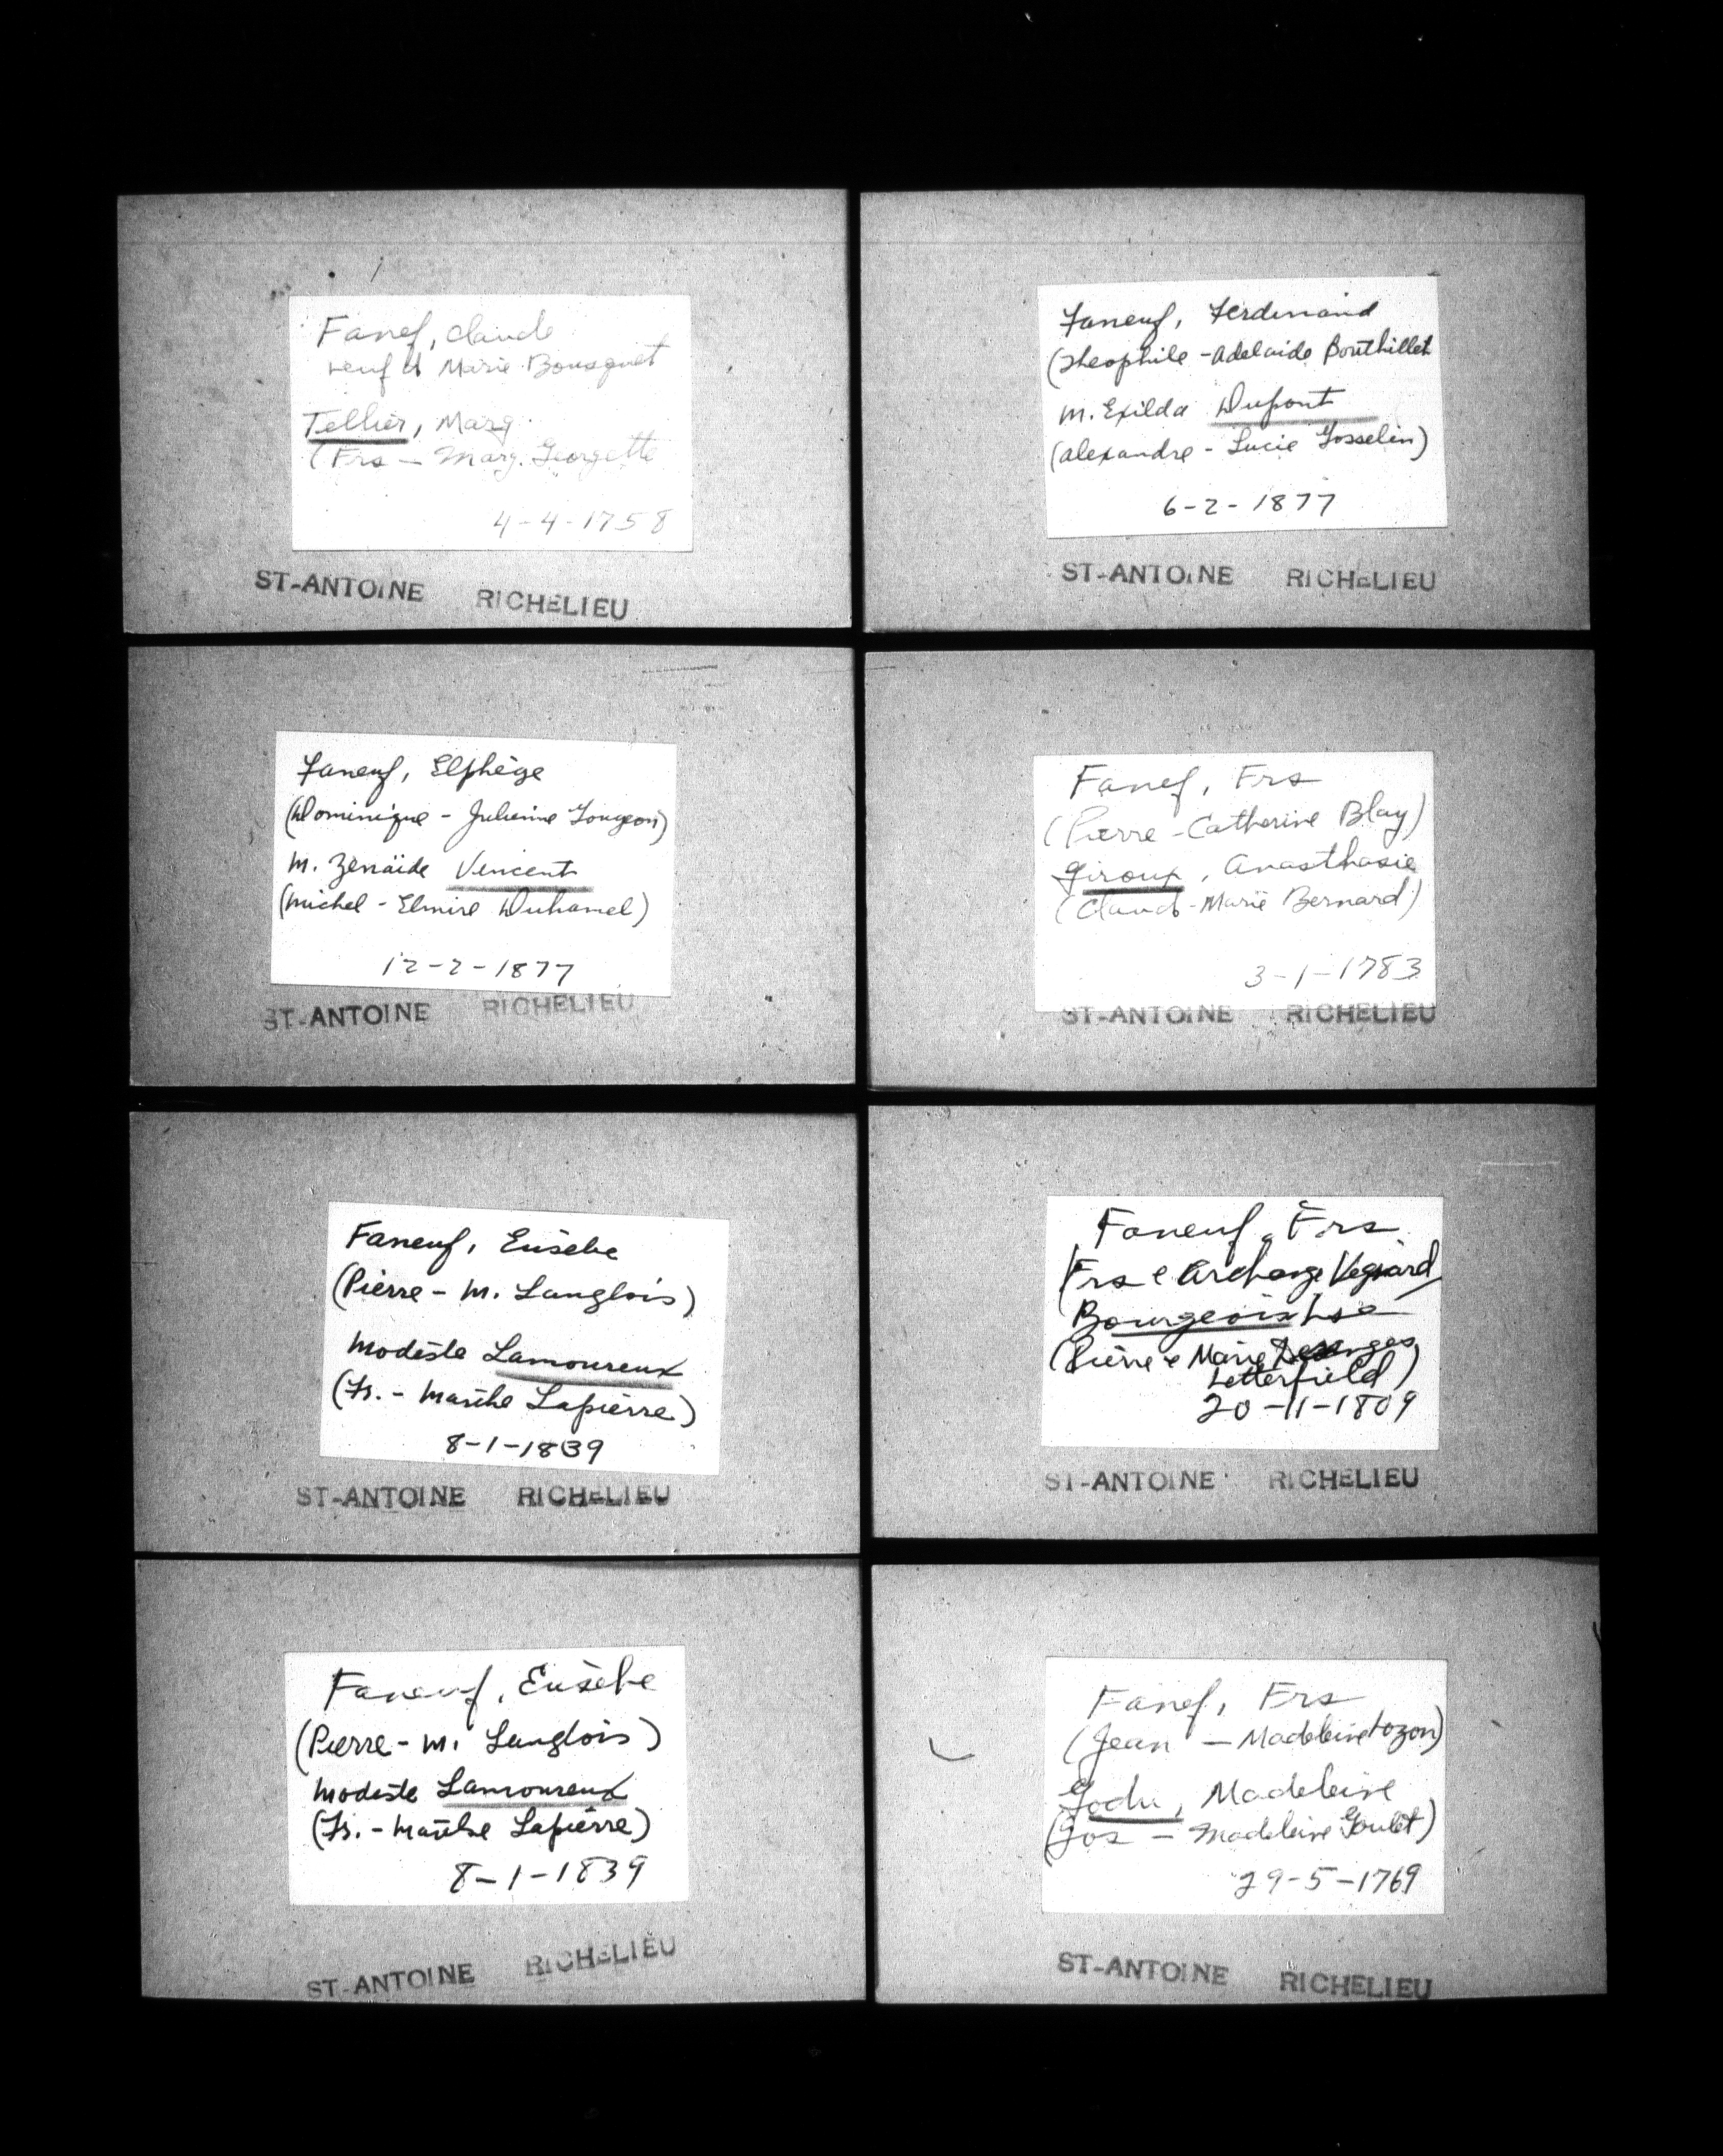 Fanef, Claude
veuf d Marie Bousquet
Tellier, Marg.
(Frs - Marg. Georgette
4-4-1758
ST-ANTOINE RICHELIEU
Faneuf, Ferdinand
(Theophile - Adelaide Bouthillet
M. Exilda Dupont
(Alexandre - Lucie Gosselin)
6-2-1877
ST-ANTOINE RICHELIEU
Faneuf, Elphège
(Dominique - Julienne Gougeon)
M. Zénaïde Vincent
(Michel - Elmire Duhamel)
12-2-1877
ST-ANTOINE RICHELIEU
Fanef, Frs
(Pierre - Catherine Blay)
Giroux, Anasthasie
(Claud - Marie Bernard)
3-1-1783
ST-ANTOINE RICHELIEU
Faneuf, Eusèbe
(Pierre - M. Langlois)
Modeste Lamoureux
(Fs. - Marthe Lapierre)
8-1-1839
ST-ANTOINE RICHELIEU
Faneuf, Frs
(Frs e Archange Vegiard)
Bourgeois
(Pierre e Marie
Letterfield)
20-11-1809
ST-ANTOINE RICHELIEU
Faneuf, Eusèbe
(Pierre - M. Langlois)
Modeste Lamoureux
(Fs. - Marthe Lapierre)
8-1-1839
ST-ANTOINE RICHELIEU
Fanef, Frs
(Jean - Madeleine Hozon)
Godu, Madeleine
(Jos - Madeleine Goulet)
29-5-1769
ST-ANTOINE RICHELIEU